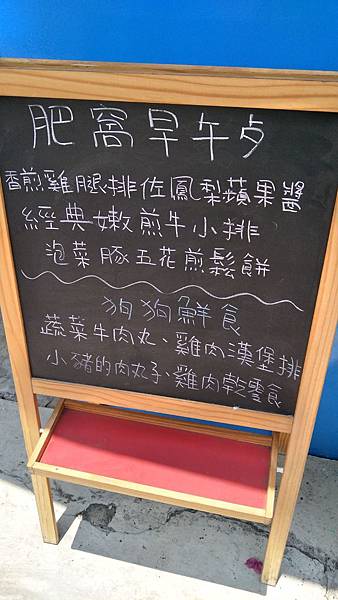 肥窩早午歺
香煎雞腿排佐鳳梨蘋果醬
經典嫩煎牛小排
泡菜豚五花煎鬆餅
狗狗鮮食
蔬菜牛肉丸、雞肉漢堡排
小豬的肉丸子、雞肉乾零食